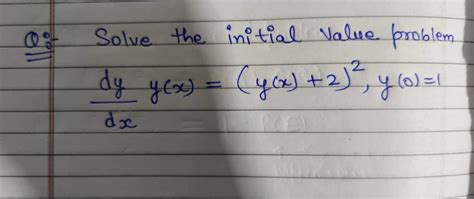 Q:- Solve the initial value problem
dy/dx y(x) = (y(x) + 2)², y(0)=1